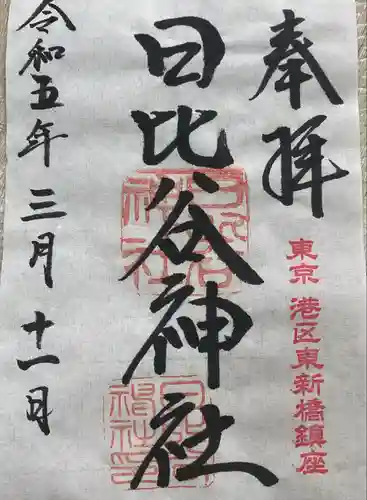 奉拝
東京 港区東新橋鎮座
日比谷神社
令和五年三月十一日